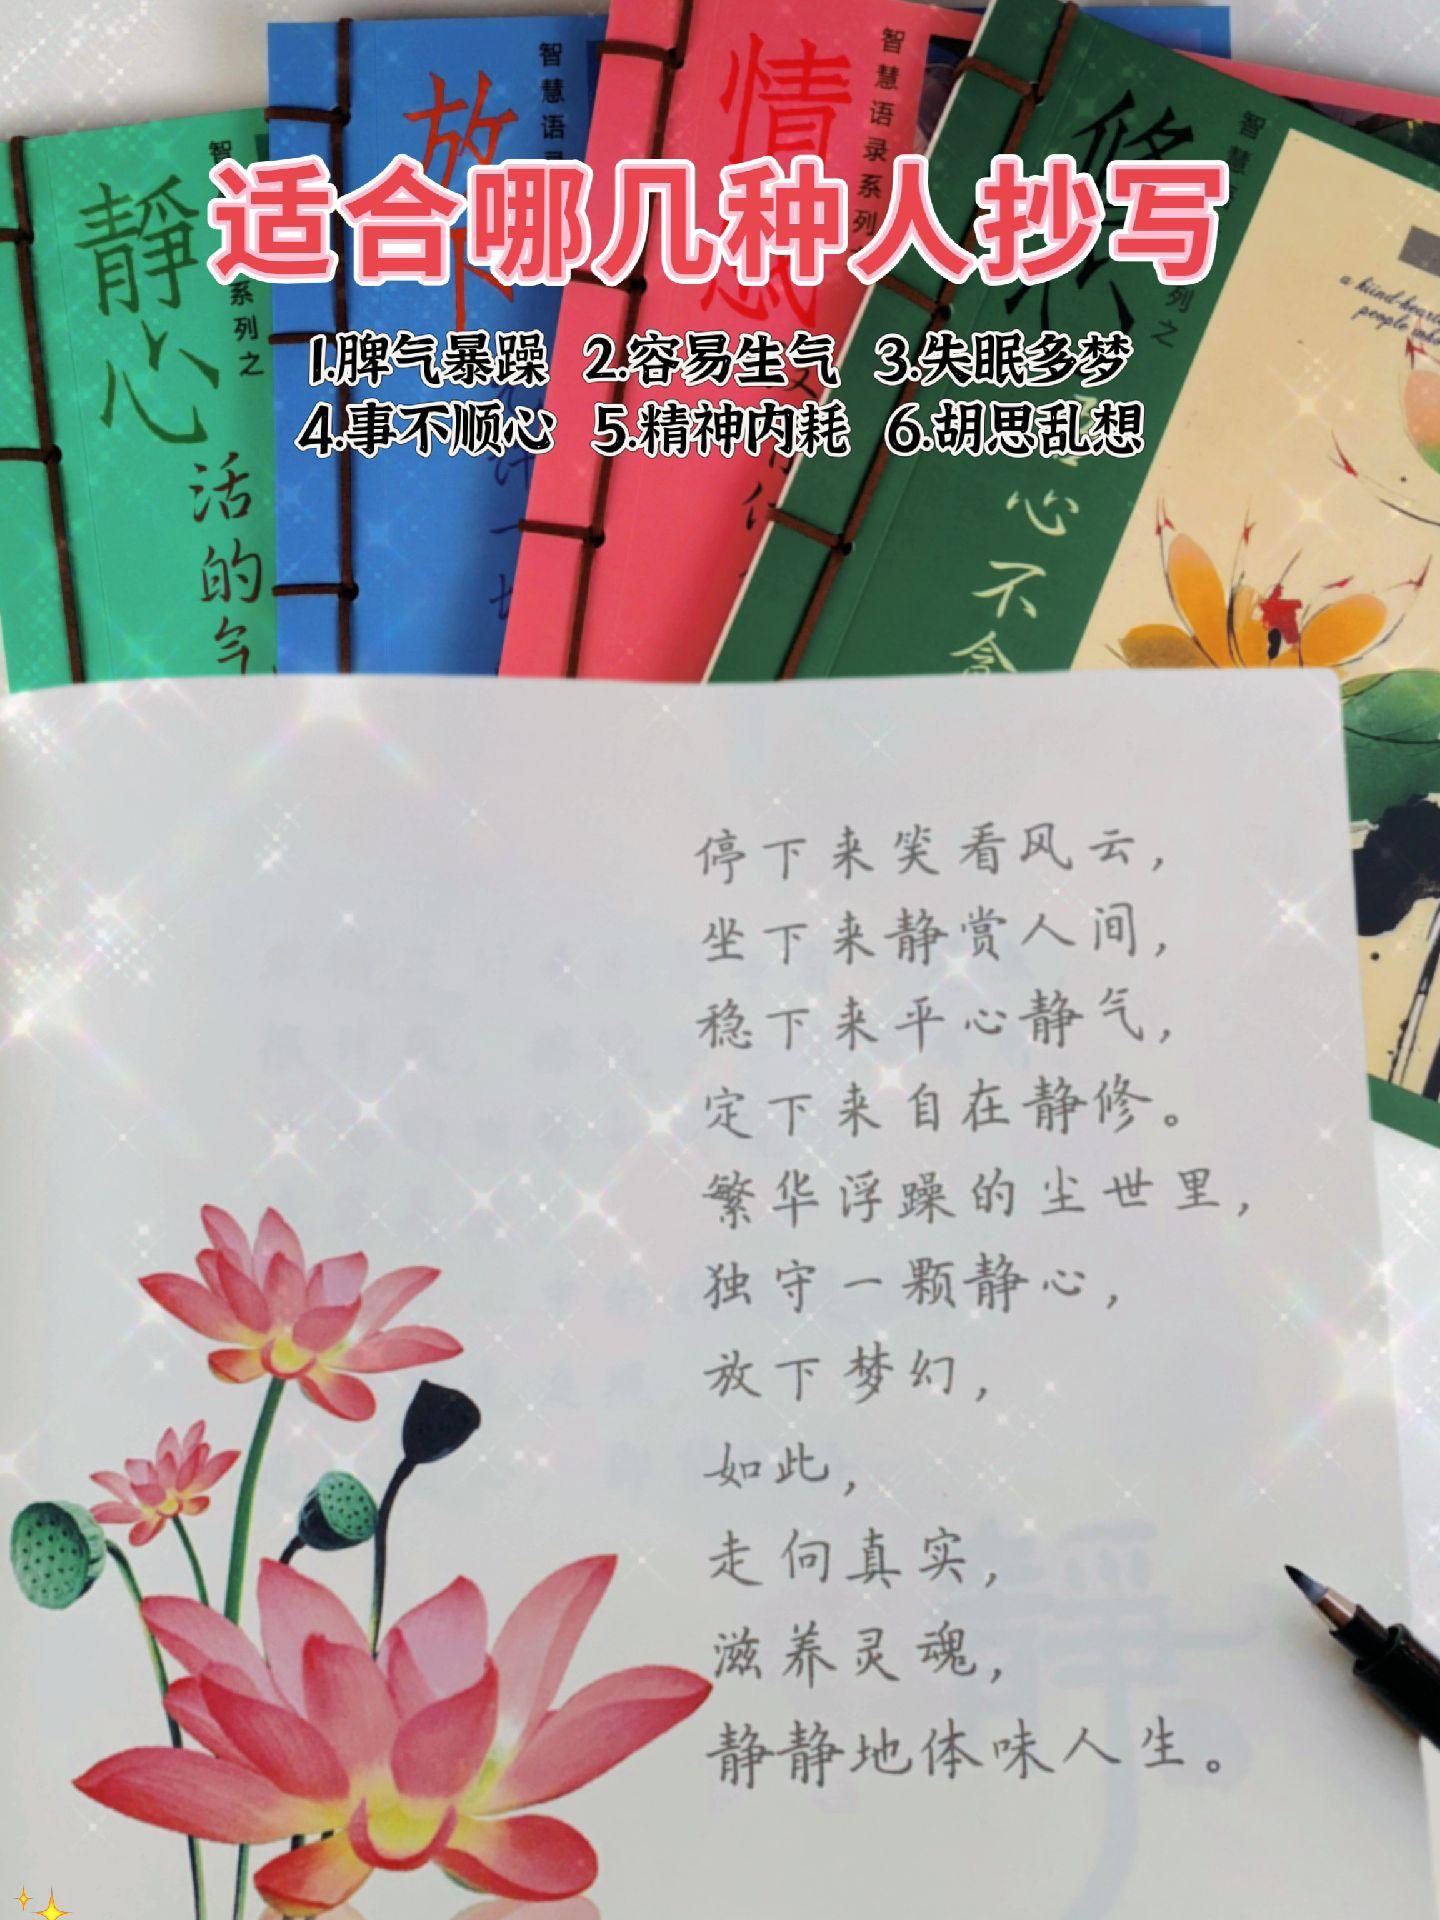 适合哪几种人抄写
1.脾气暴躁 2.容易生气 3.失眠多梦
4.事不顺心 5.精神内耗 6.胡思乱想
智
系列之
靜心
活的气
智慧语录
放下
一切
智慧语录系列
情感
智慧系列
修心
心不贪
a kind-hearted
people
停下来笑看风云，
坐下来静赏人间，
稳下来平心静气，
定下来自在静修。
繁华浮躁的尘世里，
独守一颗静心，
放下梦幻，
如此，
走向真实，
滋养灵魂，
静静地体味人生。